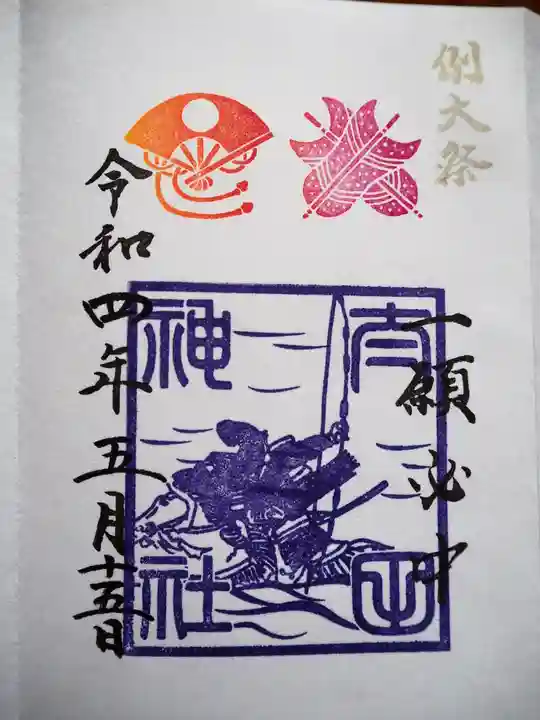 例大祭
一願必中
神社
令和四年五月十五日